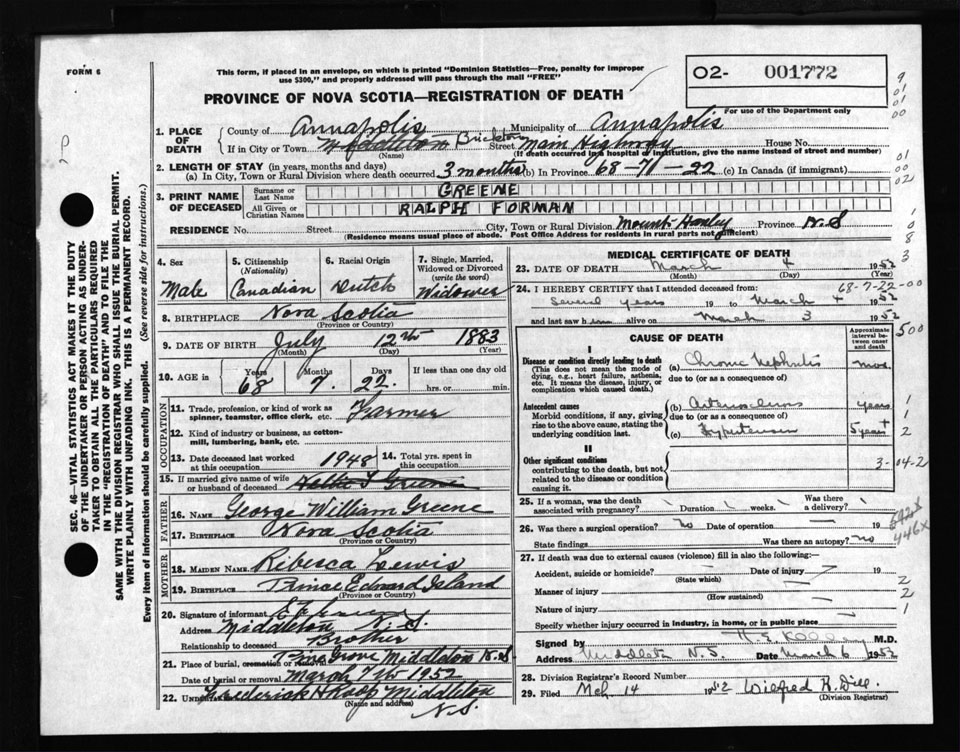 FORM 6
This form, if placed in an envelope, on which is printed "Dominion Statistics—Free, penalty for improper
use $300," and properly addressed will pass through the mail "FREE"
PROVINCE OF NOVA SCOTIA—REGISTRATION OF DEATH
O2- 001772
For use of the Department only
1. PLACE OF DEATH
County of Annapolis Municipality of Annapolis
If in City or Town Middleton Brickton Street Main Highway House No.
(Name) (If death occurred in a hospital or institution, give the name instead of street and number)
2. LENGTH OF STAY (in years, months and days)
(a) In City, Town or Rural Division where death occurred 3 months (b) In Province 68-7-22 (c) In Canada (if immigrant)
3. PRINT NAME OF DECEASED
Surname or Last Name GREENE
All Given or Christian Names RALPH FORMAN
RESIDENCE No. Street City, Town or Rural Division Mount Hanley Province N.S
(Residence means usual place of abode. Post Office Address for residents in rural parts not sufficient)
4. Sex
Male
5. Citizenship
(Nationality)
Canadian
6. Racial Origin
Dutch
7. Single, Married,
Widowed or Divorced
(write the word)
Widower
8. BIRTHPLACE Nova Scotia
(Province or Country)
9. DATE OF BIRTH July 12th 1883
(Month) (Day) (Year)
10. AGE in Years Months Days If less than one day old
68 7. 22. hrs. or min.
OCCUPATION
11. Trade, profession, or kind of work as
spinner, teamster, office clerk, etc. Farmer
12. Kind of industry or business, as cotton-
mill, lumbering, bank, etc.
13. Date deceased last worked
at this occupation 1948
14. Total yrs. spent in
this occupation
15. If married give name of wife
or husband of deceased Greene
FATHER
16. NAME George William Greene
17. BIRTHPLACE Nova Scotia
(Province or Country)
MOTHER
18. MAIDEN NAME Ribecca Lewis
19. BIRTHPLACE Prince Edward Island
(Province or Country)
20. Signature of informant
Address Middleton N.S.
Relationship to deceased Brother
21. Place of burial, cremation or removal Pine Grove Middleton N.S
Date of burial or removal March 7th 1952
22. UNDERTAKER Frederick Middleton
(Name and address) N.S.
MEDICAL CERTIFICATE OF DEATH
23. DATE OF DEATH March 4 1952
(Month) (Day) (Year)
24. I HEREBY CERTIFY that I attended deceased from: 68-7-22-00
Several years 19 to March 4 1952
and last saw him alive on March 3 1952
CAUSE OF DEATH
Approximate interval between onset and death
I
Disease or condition directly leading to death
(This does not mean the mode of
dying, e.g., heart failure, asthenia,
etc. It means the disease, injury, or
complication which caused death.)
(a) Chronic Nephritis mos.
due to (or as a consequence of)
Antecedent causes
Morbid conditions, if any, giving
rise to the above cause, stating the
underlying condition last.
(b) years
due to (or as a consequence of)
(c) Hypertension 5 years +
II
Other significant conditions
contributing to the death, but not
related to the disease or condition
causing it.
3-04-2
25. If a woman, was the death
associated with pregnancy? Duration weeks. Was there
a delivery?
26. Was there a surgical operation? no Date of operation 19
State findings Was there an autopsy? no
592X
446X
27. If death was due to external causes (violence) fill in also the following:—
Accident, suicide or homicide? Date of injury 19
(State which)
Manner of injury
(How sustained)
Nature of injury
Specify whether injury occurred in industry, in home, or in public place
Signed by M.D.
Address Middleton N.S. Date March 6 1952
28. Division Registrar's Record Number
29. Filed Mch 14 1952 Wilfred R. Dill
(Division Registrar)
SEC. 46—VITAL STATISTICS ACT MAKES IT THE DUTY
OF THE UNDERTAKER OR PERSON ACTING AS UNDER-
TAKER TO OBTAIN ALL THE PARTICULARS REQUIRED
IN THE "REGISTRATION OF DEATH" AND TO FILE THE
SAME WITH THE DIVISION REGISTRAR WHO SHALL ISSUE THE BURIAL PERMIT.
WRITE PLAINLY WITH UNFADING INK. THIS IS A PERMANENT RECORD.
Every item of information should be carefully supplied. (See reverse side for instructions.)